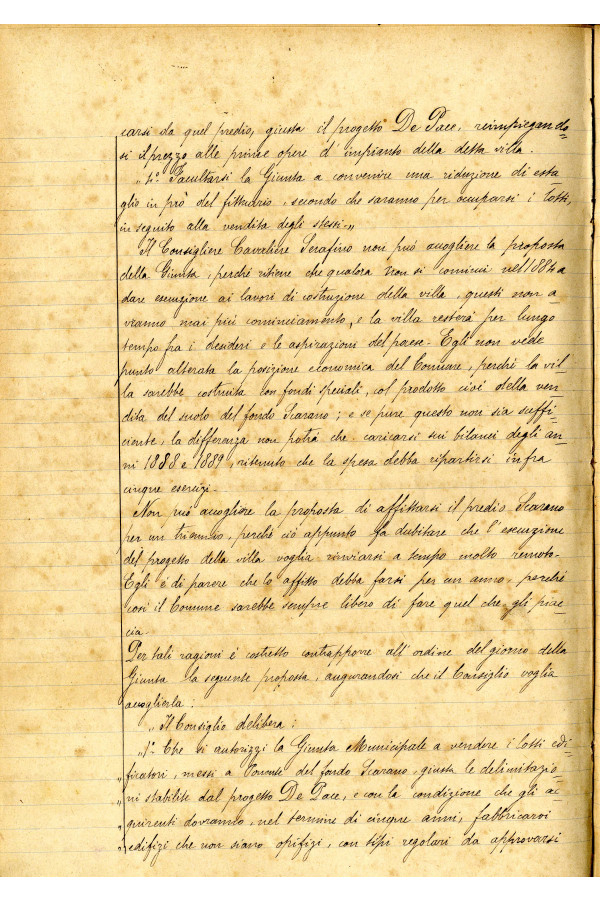 carsi da quel predio, giusta il progetto De Pace, reimpiegando=
si il prezzo alle prime opere d'impianto della detta villa.
„4° Facultarsi la Giunta a convenire una riduzione di esta=
glio in prò del fittuario, secondo che saranno per occuparsi i lotti,
in seguito alla vendita degli stessi.„
Il Consigliere Cavaliere Serafino non può accogliere la proposta
della Giunta, perché ritiene che qualora non si cominci nel 1884 a
dare esecuzione ai lavori di costruzione della villa, questi non a
vranno mai più cominciamento, e la villa resterà per lungo
tempo fra i desideri e le aspirazioni del paese. Egli non vede
punto alterata la posizione economica del Comune, perché la vil
la sarebbe costruita con fondi speciali, col prodotto cioè della ven
dita del suolo del fondo Scarano; e se pure questo non sia suffi=
ciente, la differenza non potrà che caricarsi sui bilanci degli an=
ni 1888 e 1889, ritenuto che la spesa debba ripartirsi infra
cinque esercizi.
Non può accogliere la proposta di affittarsi il predio Scarano
per un triennio, perché ciò appunto fa dubitare che l'esecuzione
del progetto della villa voglia rinviarsi a tempo molto remoto.
Egli è di parere che lo affitto debba farsi per un anno, perché
così il Comune sarebbe sempre libero di fare quel che gli piac
cia.
Per tali ragioni è costretto contrapporre all'ordine del giorno della
Giunta la seguente proposta, augurandosi che il Consiglio voglia
accoglierla:
„Il Consiglio delibera:
„1° Che si autorizzi la Giunta Municipale a vendere i lotti edi=
„ficatori, messi a Ponente del fondo Scarano, giusta le delimitazio=
„ni stabilite dal progetto De Pace, e con la condizione che gli ac
„quirenti dovranno, nel termine di cinque anni, fabbricarvi
„edifizi che non siano opifizi, con tipi regolari da approvarsi